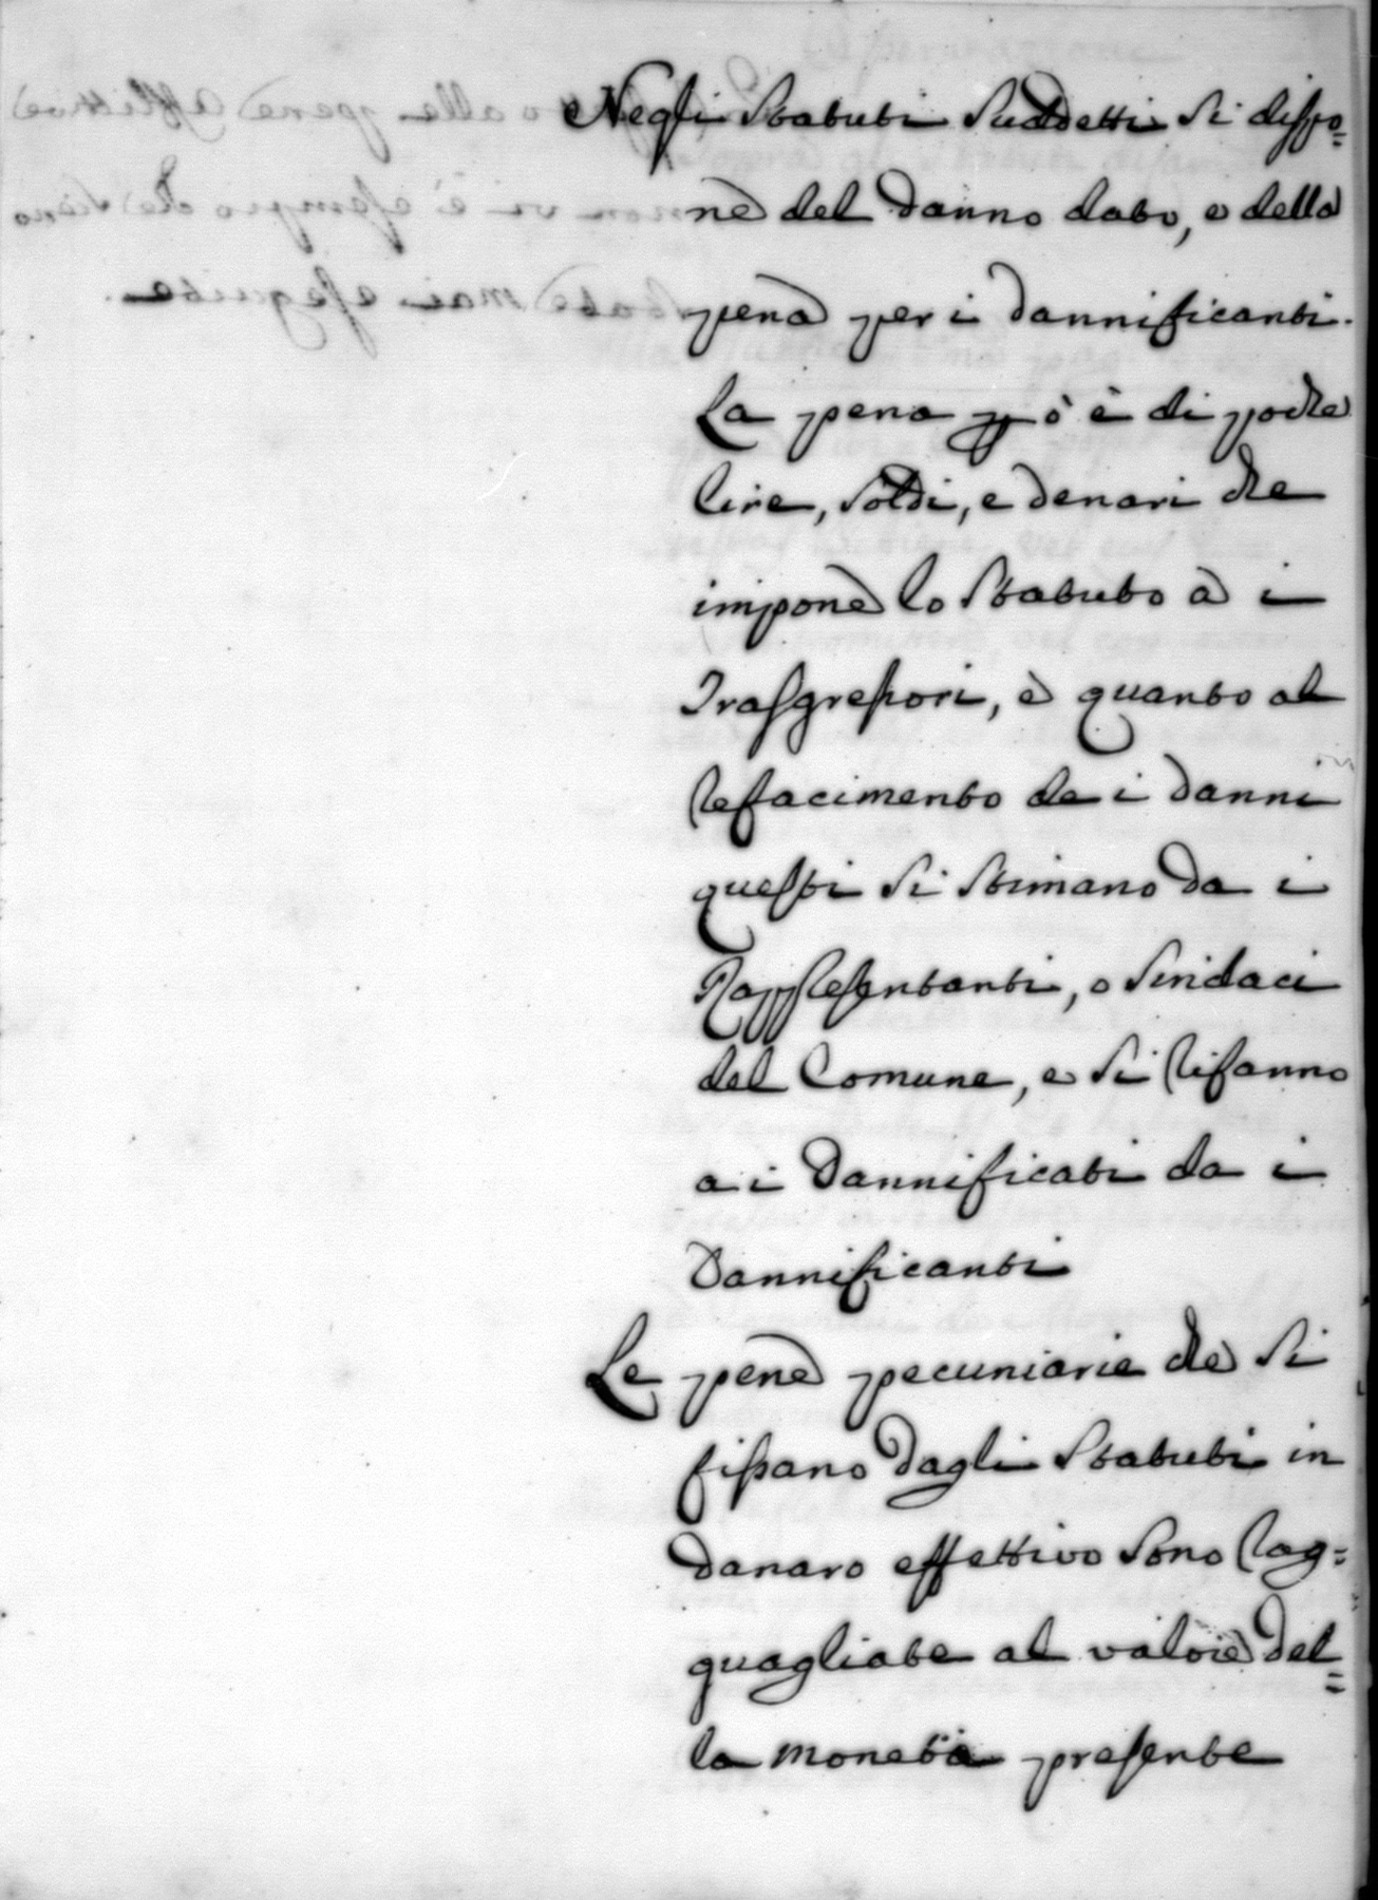 Negli Statuti Suddetti si dispo=
ne del danno dato, e della
pena per i dannificanti.
La pena p ò è di poche
lire, soldi, e denari che
impone lo Statuto à i
Trasgressori, è quanto al
refacimento de i danni
questi si stimano da i
Rappresentanti, o Sindaci
del Comune, e si rifanno
a i Dannificati da i
Dannificanti
Le pene pecuniarie che si
fissano dagli Statuti in
danaro effettivo sono rag=
guagliate al valore del=
la moneta presente